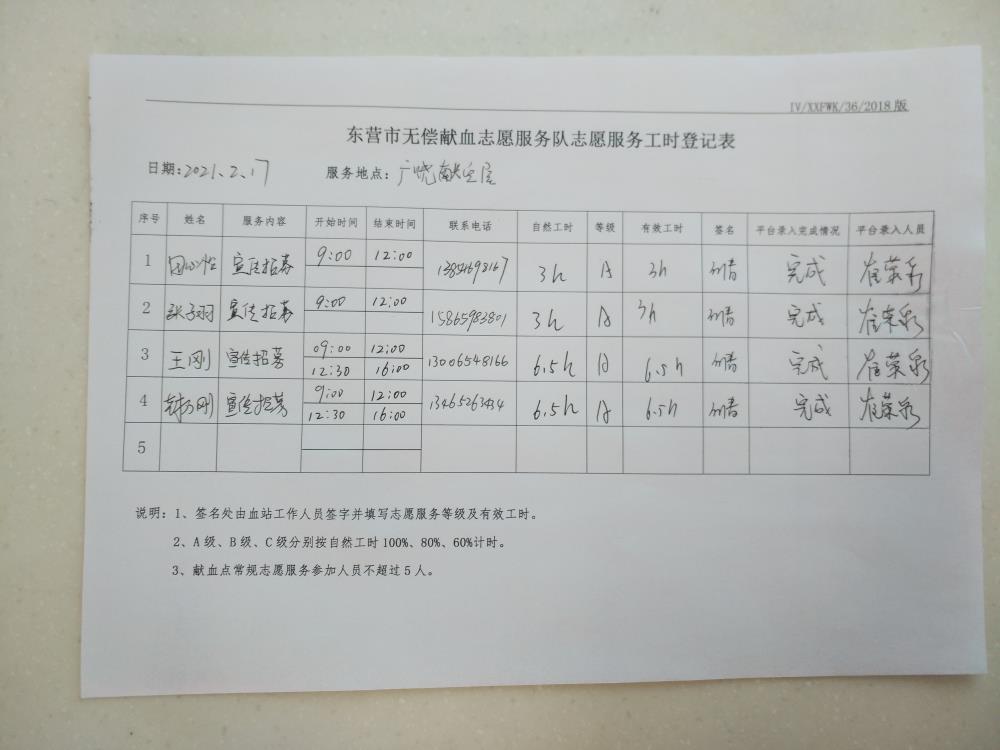 IV/XXFWK/36/2018 版
东营市无偿献血志愿服务队志愿服务工时登记表
日期:2021、2、17 服务地点: 广饶献血屋
序号 姓名 服务内容 开始时间 结束时间 联系电话 自然工时 等级 有效工时 签名 平台录入完成情况 平台录入人员
1 宣传招募 9:00 12:00 3h A 3h 完成 崔荣彩
2 张子羽 宣传招募 9:00 12:00 15865983801 3h A 3h 完成 崔荣彩
3 王刚 宣传招募 09:00 12:00 13006548166 6.5h A 6.5h 完成 崔荣彩
12:30 16:00
4 刚 宣传招募 9:00 12:00 13465263434 6.5h A 6.5h 完成 崔荣彩
12:30 16:00
5
说明：1、签名处由血站工作人员签字并填写志愿服务等级及有效工时。
2、A 级、B 级、C 级分别按自然工时 100%、80%、60%计时。
3、献血点常规志愿服务参加人员不超过 5 人。